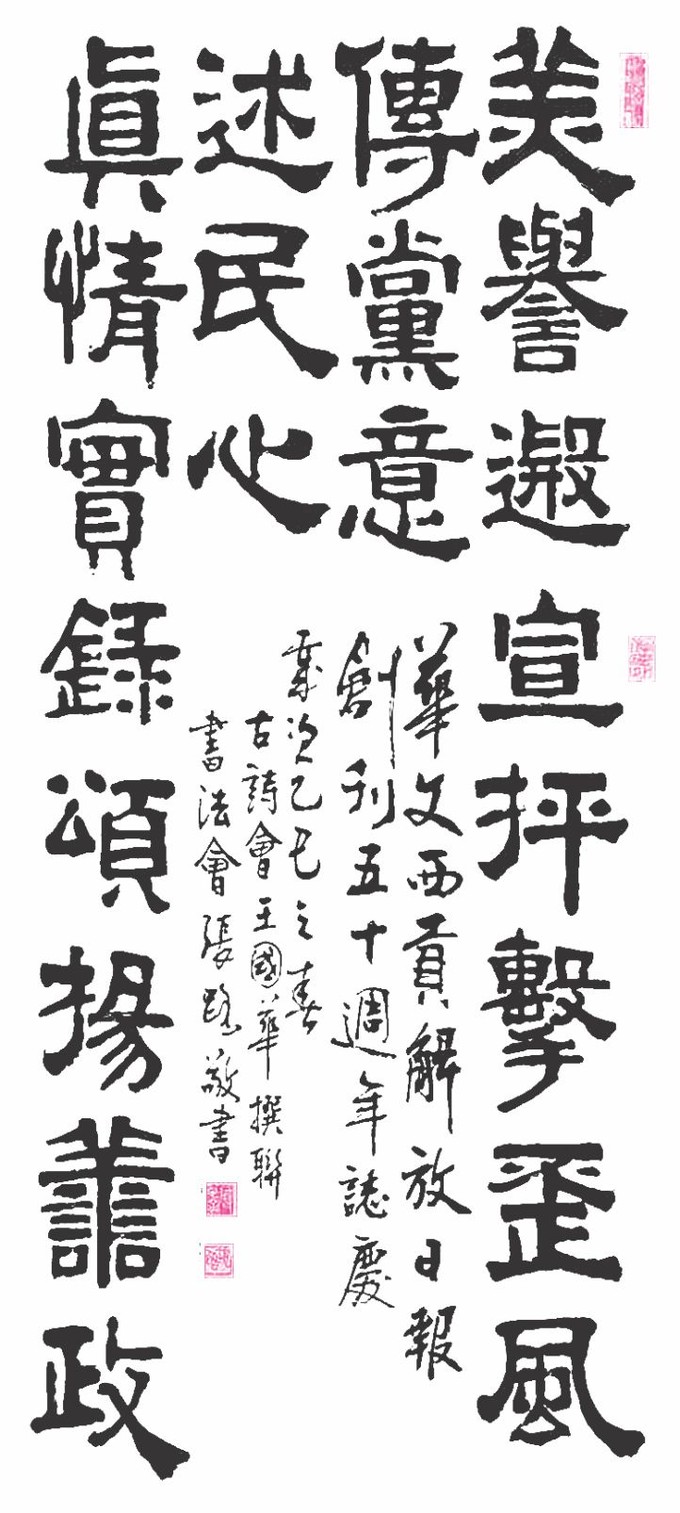 美譽遐宣抨擊歪風
傳黨意
眞情實錄頌揚譱政
述民心
華文西貢解放日報
創刊五十週年誌慶
歲次乙巳之春
古詩會王國華撰聯
書法會張路敬書